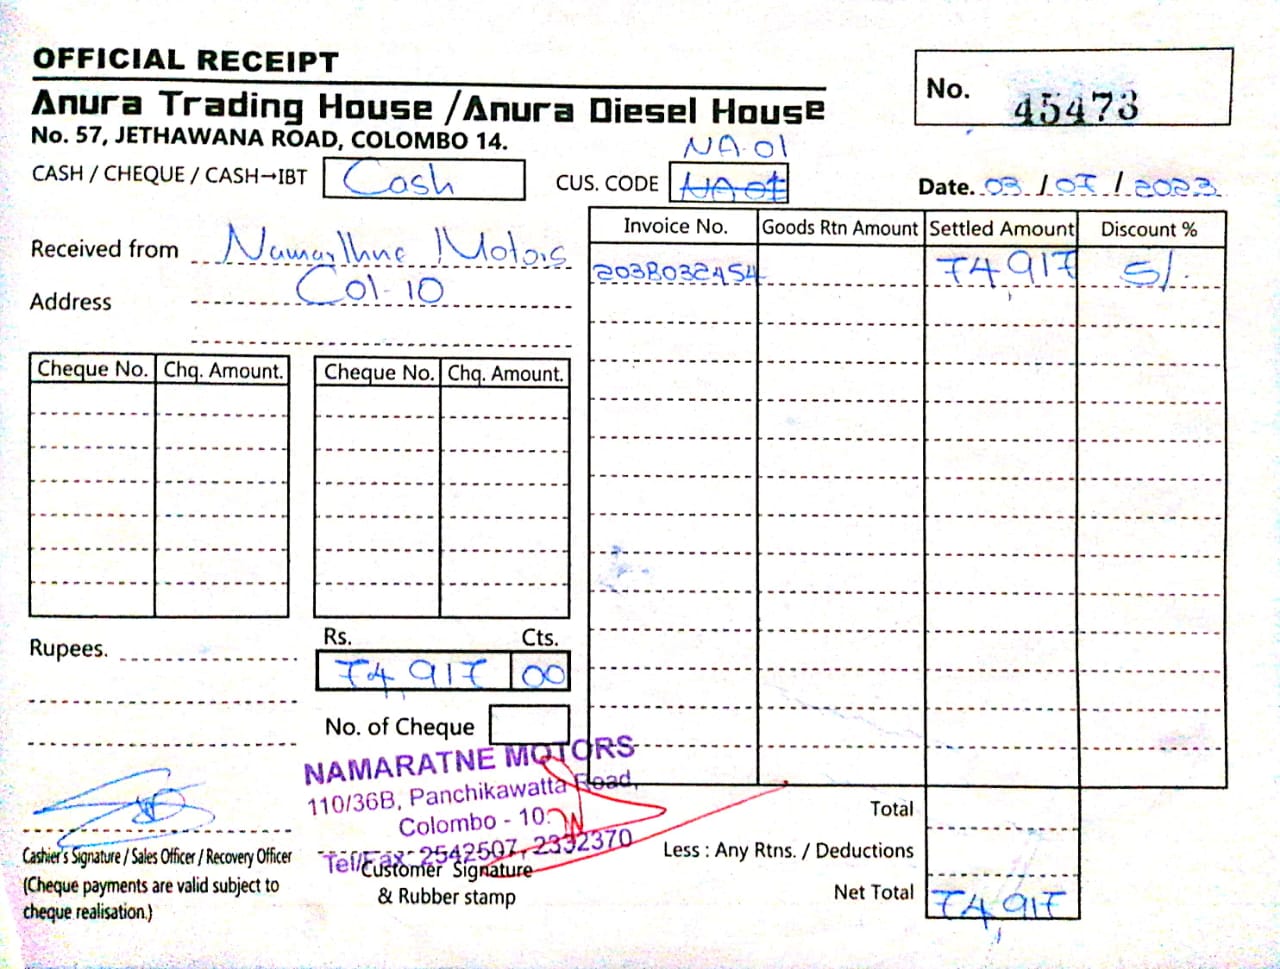 OFFICIAL RECEIPT
Anura Trading House / Anura Diesel House
No. 57, JETHAWANA ROAD, COLOMBO 14.
No. 45473
CASH / CHEQUE / CASH→IBT Cash
NA-01
CUS. CODE NA 01
Date. 03 / 07 / 2023
Received from Namarthne Motors
Address Col-10
Invoice No. Goods Rtn Amount Settled Amount Discount %
203B032454 74,917 5/.
Cheque No. Chq. Amount. Cheque No. Chq. Amount.
Rupees.
Rs. Cts.
74,917 00
No. of Cheque
NAMARATNE MOTORS
110/36B, Panchikawatta Road,
Colombo - 10.
Tel/Fax: 2542507, 2332370
Cashier's Signature / Sales Officer / Recovery Officer
(Cheque payments are valid subject to
cheque realisation.)
Customer Signature
& Rubber stamp
Total
Less : Any Rtns. / Deductions
Net Total 74,917